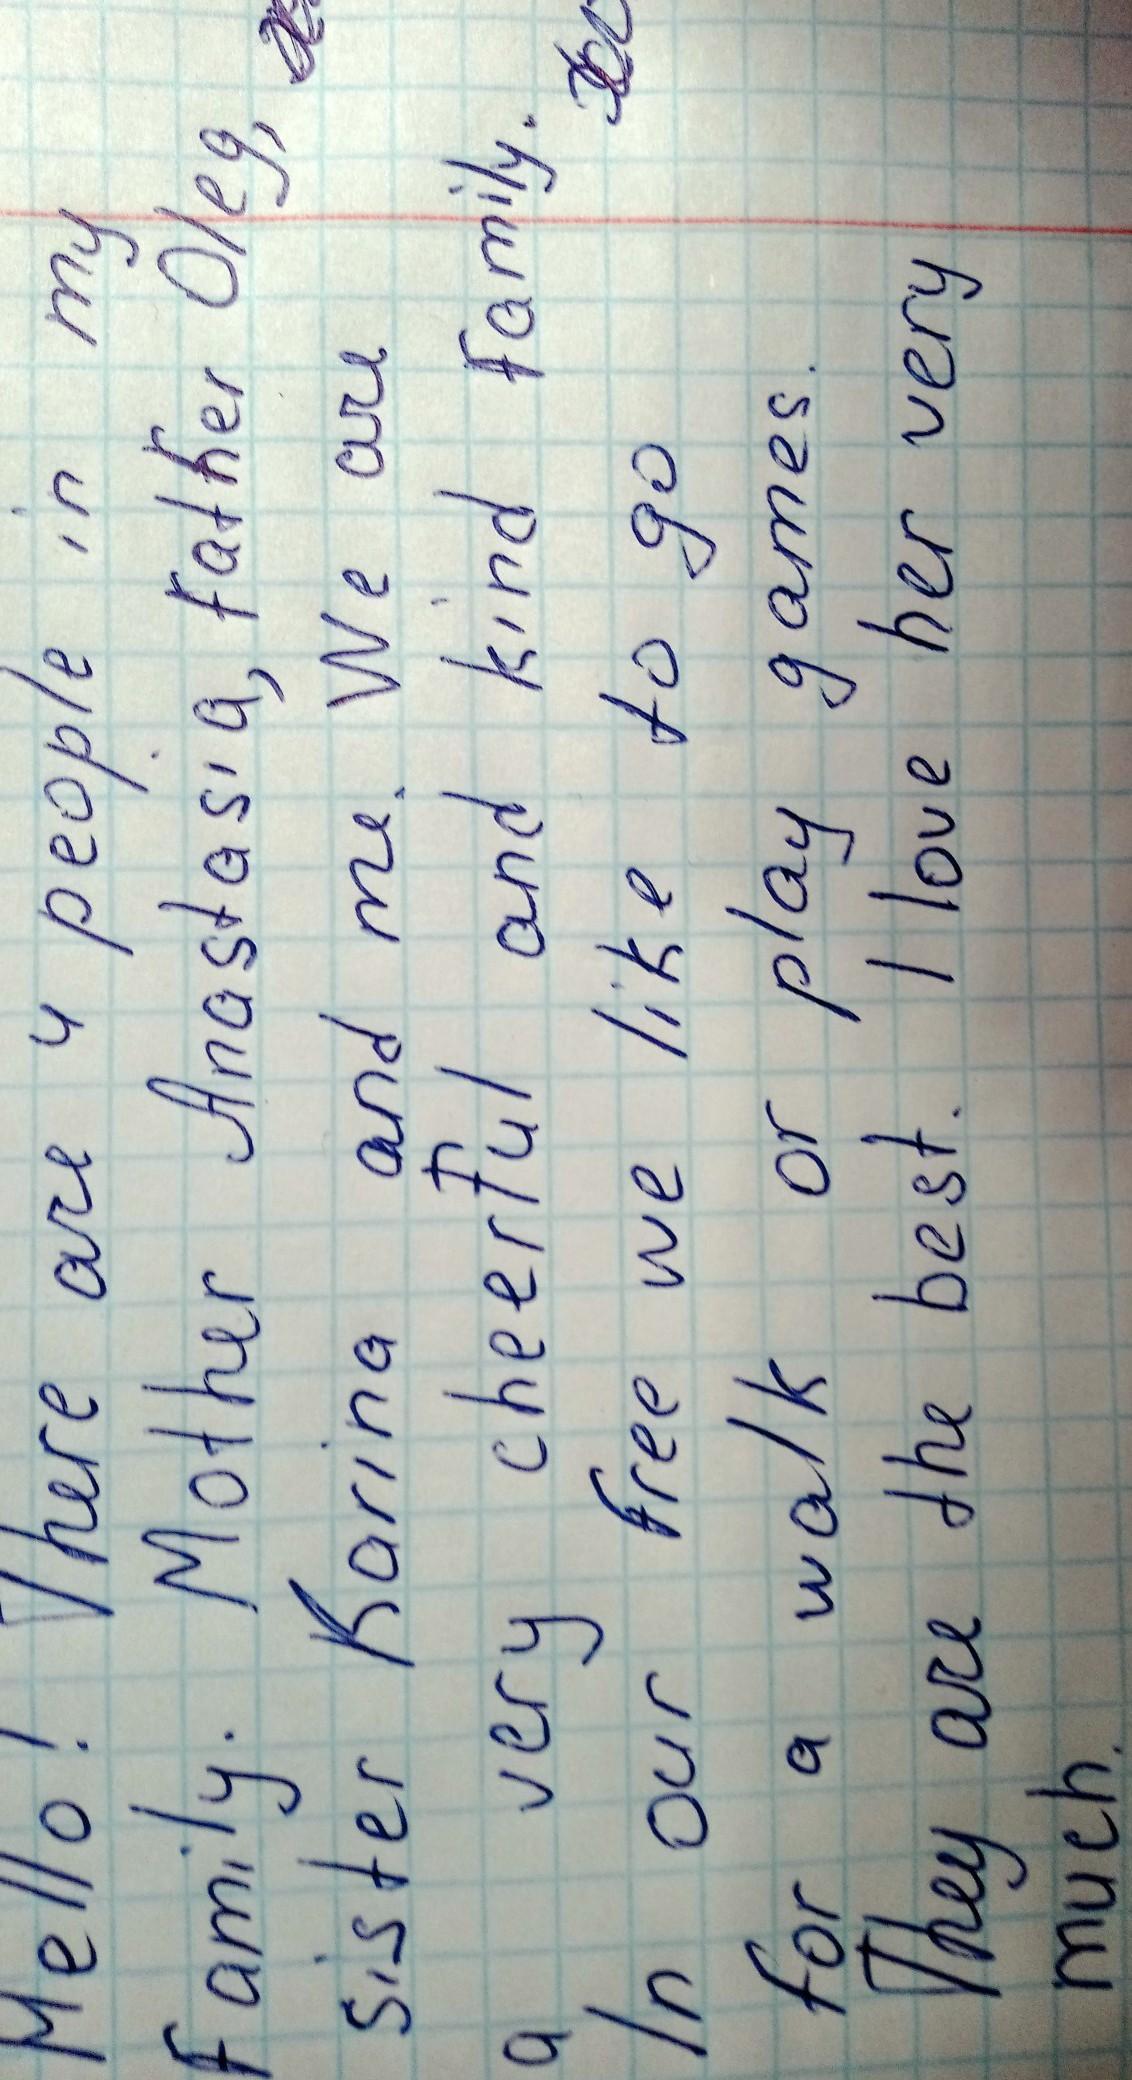 Hello! There are 4 people in my
family. Mother Anastasia, father Oleg,
sister Karina and me. We are
a very cheerful and kind family.
In our free we like to go
for a walk or play games.
They are the best. I love her very
much.